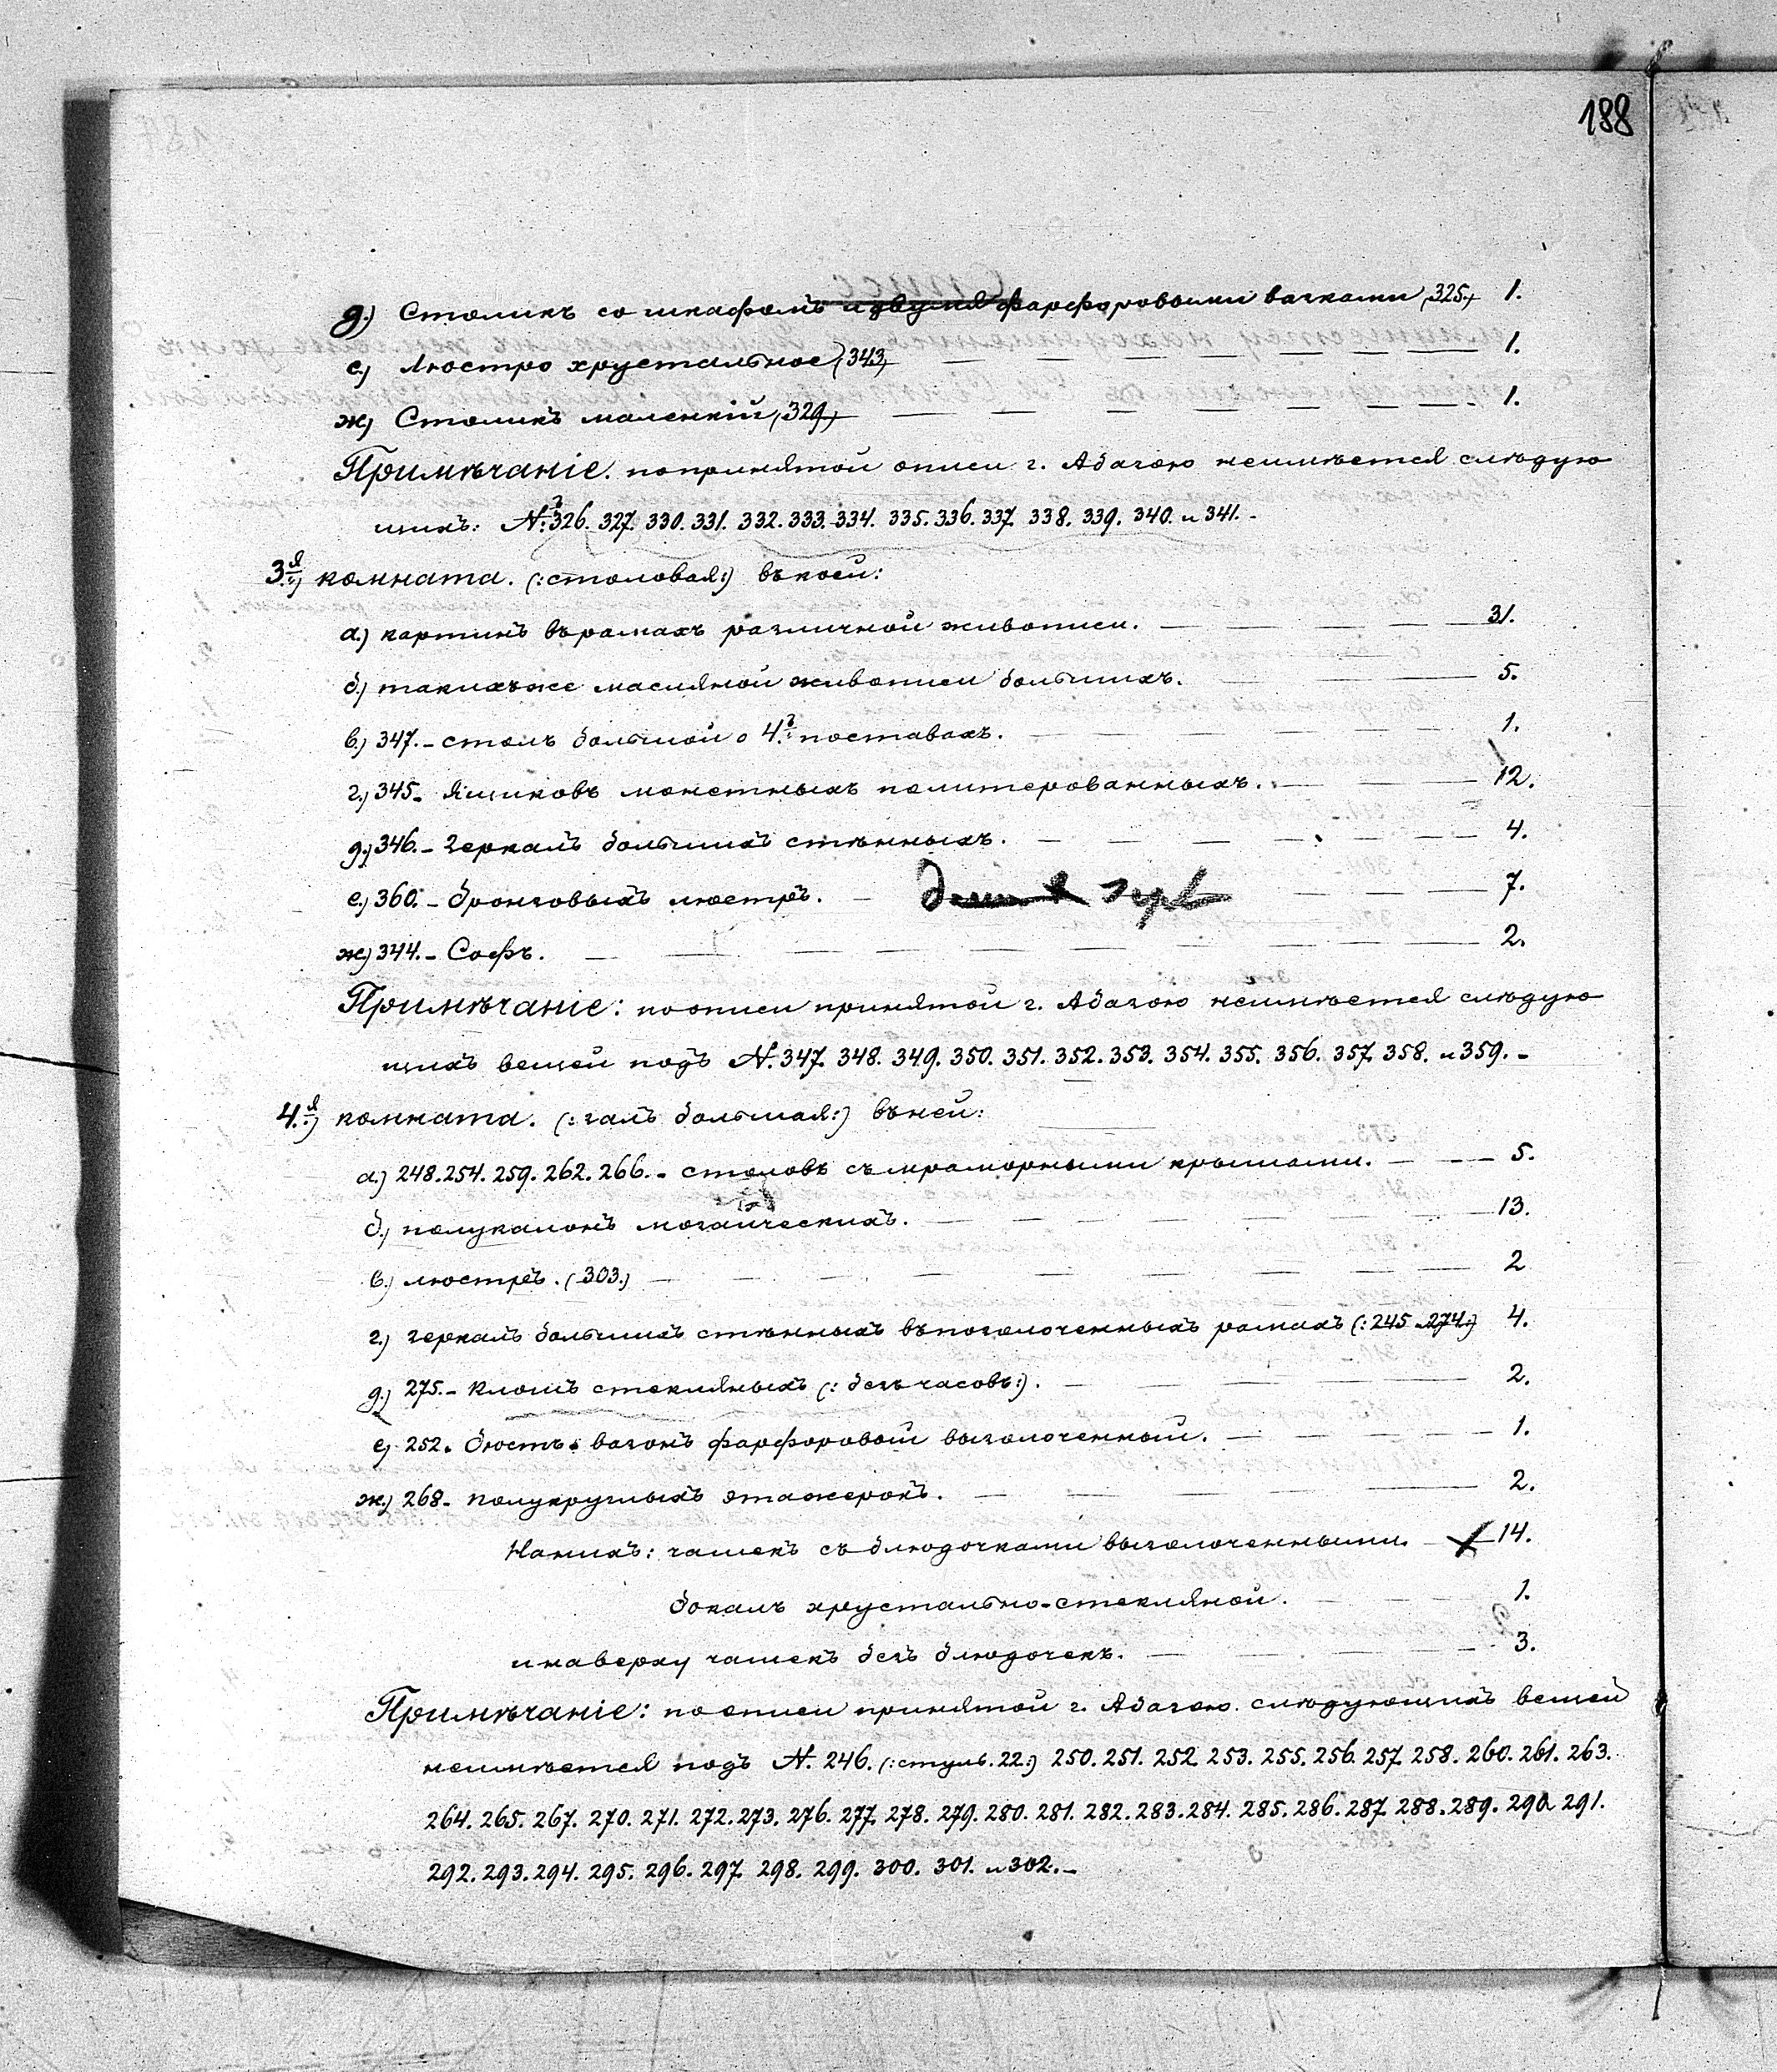 188
д.) Столикъ со шкафомъ и двумя фарфоровыми вачками (325.) 1.
е.) Люстро хрустальное (343) 1.
ж.) Столикъ маленкій (329) 1.
Примѣчаніе. по принятой описи г. Абазою неимѣется слѣдую
щихъ: №. 326. 327. 330. 331. 332. 333. 334. 335. 336. 337. 338. 339. 340. и 341. -
3.я) комната. (:столовая:) въ коей:
а.) картинъ въ рамахъ различной живописи. 31.
б.) такихъже масляной живописи большихъ. 5.
в.) 347. - столъ большой о 4.х поставахъ. 1.
г.) 345. Ящиковъ монетныхъ политерованныхъ. 12.
д.) 346. - Зеркалъ большихъ стѣнныхъ. 4.
е.) 360. - бронзовыхъ люстръ. 7.
ж.) 344. - Софъ. 2.
Примѣчаніе: по описи принятой г. Абазою неимѣется слѣдую
щихъ вещей подъ №. 347. 348. 349. 350. 351. 352. 353. 354. 355. 356. 357. 358. и 359. -
4.я) комната. (:залъ большая:) въ ней:
а.) 248. 254. 259. 262. 266. - столовъ съ мраморными крышами. 5.
б.) полуколонъ мозаическихъ. 13.
в.) люстръ. (303.) 2
г.) зеркалъ большихъ стѣнныхъ въ позолоченныхъ рамахъ (:245 и 274:) 4.
д.) 275. - Клошъ стекляныхъ (:безъ часовъ:). 2.
е.) 252. бюстъ вазонъ фарфоровый вызолоченный. 1.
ж.) 268. полукруглыхъ этажерокъ. 2.
На нихъ: чашекъ съ блюдочками вызолоченными. 14.
бокалъ хрустально-стекляной. 1.
и наверху чашекъ безъ блюдочекъ. 3.
Примѣчаніе: по описи принятой г. Абазою. слѣдующихъ вещей
неимѣется подъ №. 246. (:стуль. 22:) 250. 251. 252. 253. 255. 256. 257. 258. 260. 261. 263.
264. 265. 267. 270. 271. 272. 273. 276. 277. 278. 279. 280. 281. 282. 283. 284. 285. 286. 287. 288. 289. 290. 291.
292. 293. 294. 295. 296. 297. 298. 299. 300. 301. и 302. -